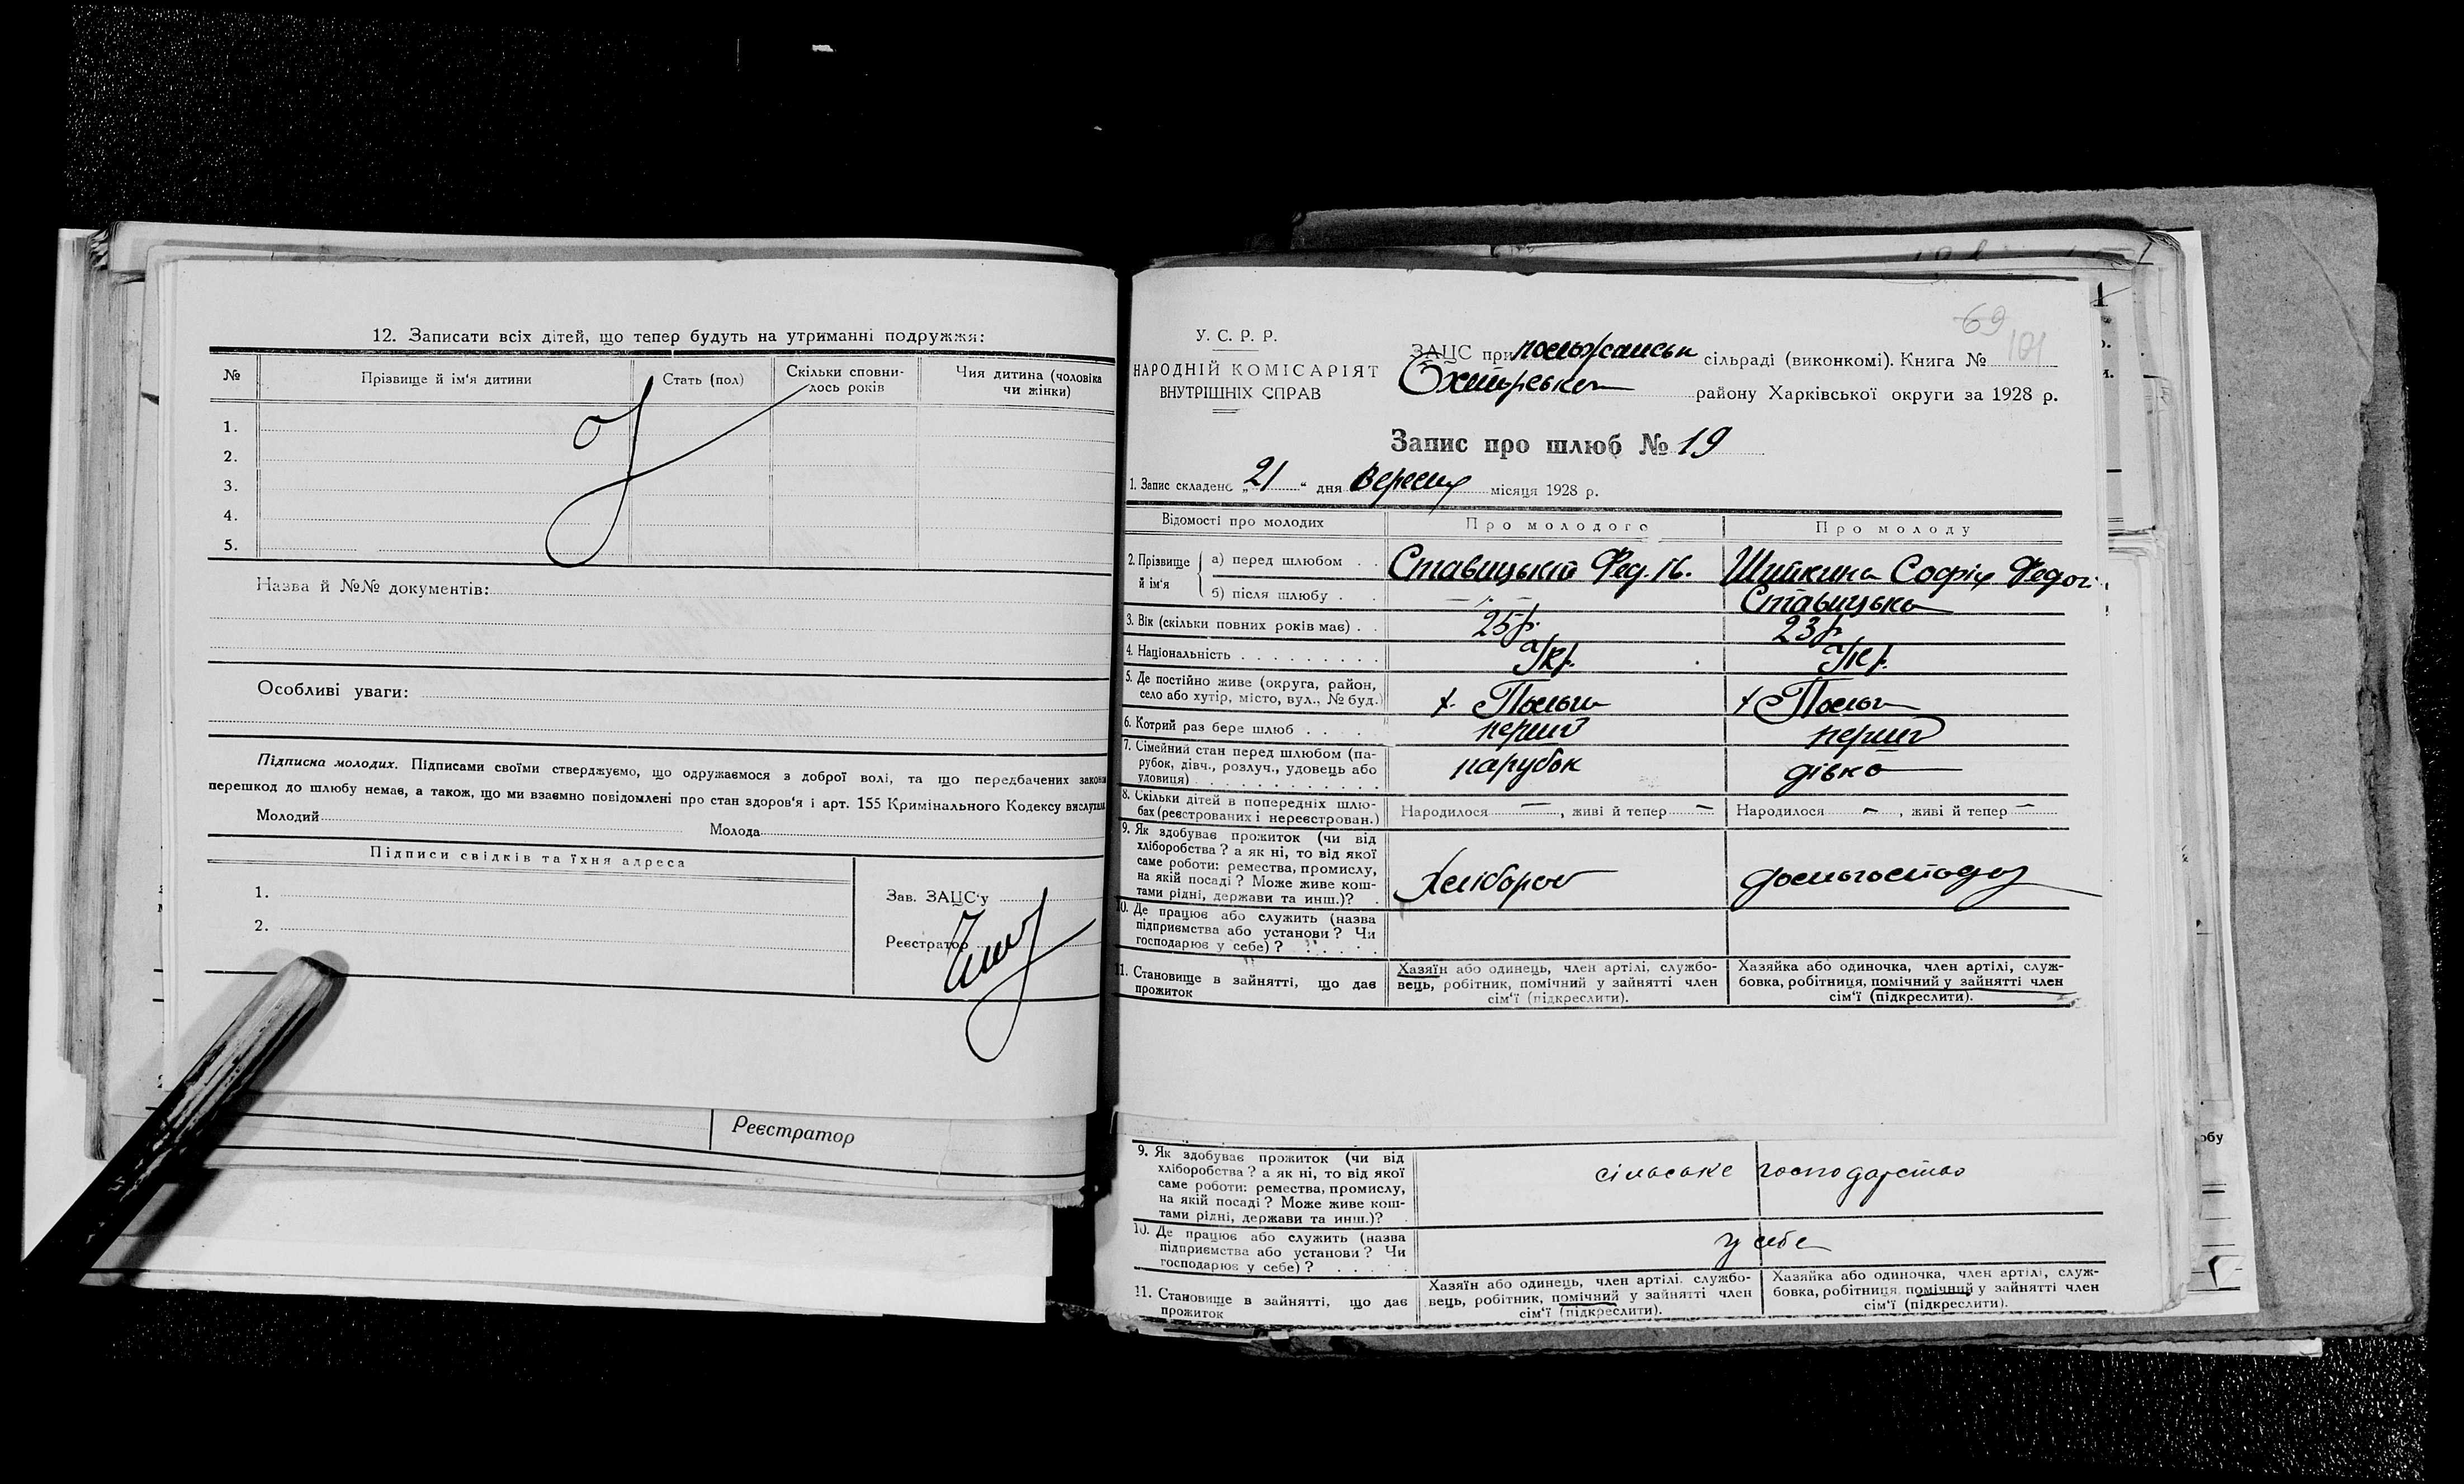 12. Записати всіх дітей, що тепер будуть на утриманні подружжя:
№
Прізвище й ім'я дитини
Стать (пол)
Скільки сповни-
лось років
Чия дитина (чоловіка
чи жінки)
1.
2.
3.
4.
5.
Назва й №№ документів:
Особливі уваги:
Підписка молодих. Підписами своїми стверджуємо, що одружаємося з доброї волі, та що передбачених закона
перешкод до шлюбу немає, а також, що ми взаємно повідомлені про стан здоров'я і арт. 155 Кримінального Кодексу вислухали
Молодий
Молода
Підписи свідків та їхня адреса
1.
2.
Зав. ЗАЦС'у
Реєстратор
Реєстратор
69
101
У. С. Р. Р.
НАРОДНІЙ КОМІСАРІЯТ
ВНУТРІШНІХ СПРАВ
ЗАЦС при сільраді (виконкомі). Книга №
району Харківської округи за 1928 р.
Запис про шлюб № 19
1. Запис складено „21" дня Вересня місяця 1928 р.
Відомості про молодих
Про молодого
Про молоду
2. Прізвище й ім'я
а) перед шлюбом . .
Ставицький Фед. Ів.
Шийкина Софія Федог.
б) після шлюбу . .
— „ —
Ставицька
3. Вік (скільки повних років має) . .
25 р.
23 р.
4. Національність
Укр.
Укр.
5. Де постійно живе (округа, район,
село або хутір, місто, вул., № буд.)
х.
х
6. Котрий раз бере шлюб
перший
перший
7. Сімейний стан перед шлюбом (па-
рубок, дівч., розлуч., удовець або
удовиця)
парубок
дівка
8. Скільки дітей в попередніх шлю-
бах (реєстрованих і нереєстрован.)
Народилося —, живі й тепер —
Народилося —, живі й тепер —
9. Як здобуває прожиток (чи від
хліборобства? а як ні, то від якої
саме роботи: ремества, промислу,
на якій посаді? Може живе кош-
тами рідні, держави та инш.)?
Хлібороб
10. Де працює або служить (назва
підприємства або установи? Чи
господарює у себе)?
11. Становище в зайнятті, що дає
прожиток
Хазяїн або одинець, член артілі, службо-
вець, робітник, помічний у зайнятті член
сім'ї (підкреслити).
Хазяйка або одиночка, член артілі, служ-
бовка, робітниця, помічний у зайнятті член
сім'ї (підкреслити).
9. Як здобуває прожиток (чи від
хліборобства? а як ні, то від якої
саме роботи: ремества, промислу,
на якій посаді? Може живе кош-
тами рідні, держави та инш.)?
сільське господарство
10. Де працює або служить (назва
підприємства або установи? Чи
господарює у себе)?
у себе
11. Становище в зайнятті, що дає
прожиток
Хазяїн або одинець, член артілі, службо-
вець, робітник, помічний у зайнятті член
сім'ї (підкреслити).
Хазяйка або одиночка, член артілі, служ-
бовка, робітниця, помічний у зайнятті член
сім'ї (підкреслити).